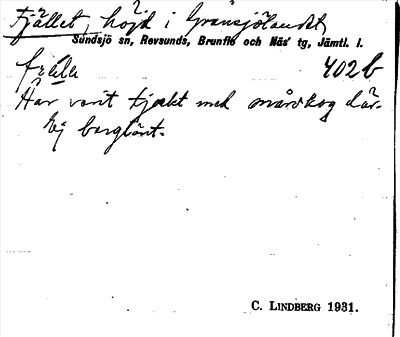 Fjället, höjd i Gransjölandet,
Sundsjö sn, Revsunds, Brunflo och Näs' tg, Jämtl. l.
402b
Har varit tjockt med småskog där.
Ej bergbänt.
C. LINDBERG 1931.